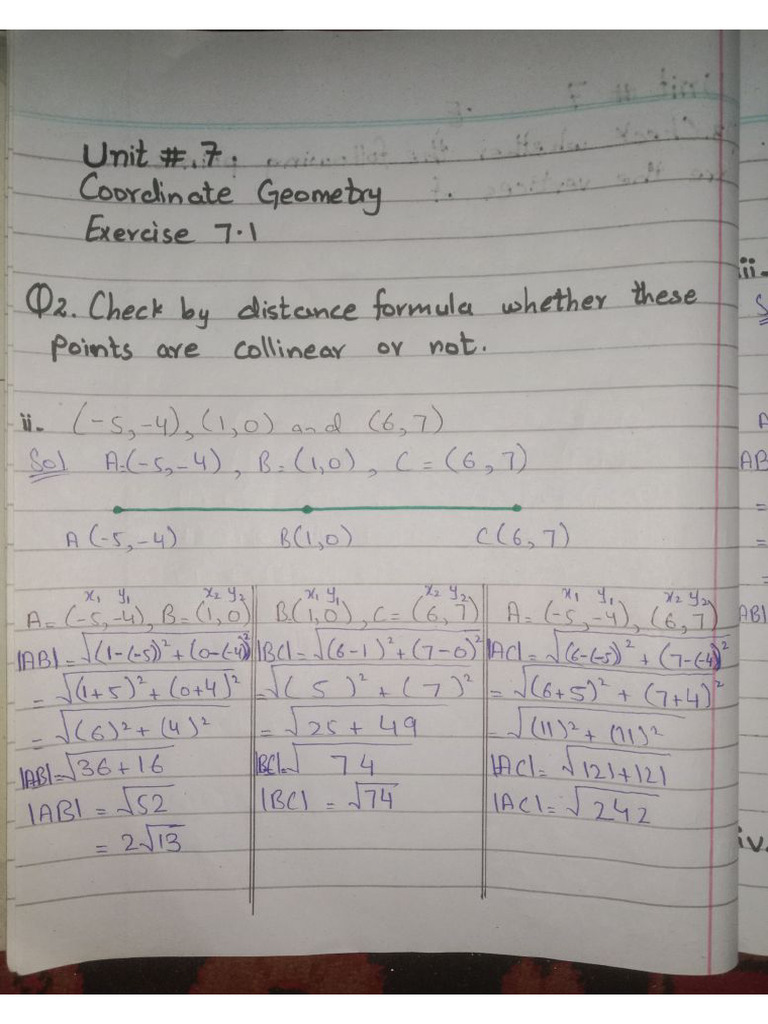 Unit #.7.
Coordinate Geometry
Exercise 7.1
Q2. Check by distance formula whether these
points are collinear or not.
ii- (-5,-4),(1,0) and (6,7)
Sol A=(-5,-4), B=(1,0), C=(6,7)
A(-5,-4) B(1,0) C(6,7)
x₁ y₁ x₂ y₂
A=(-5,-4), B=(1,0)
|AB|=√(1-(-5))²+(0-(-4))²
=√(1+5)²+(0+4)²
=√(6)²+(4)²
|AB|=√36+16
|AB|=√52
=2√13
x₁ y₁ x₂ y₂
B(1,0), C=(6,7)
|BC|=√(6-1)²+(7-0)²
=√(5)²+(7)²
=√25+49
|BC|=√74
|BC|=√74
x₁ y₁ x₂ y₂
A=(-5,-4), (6,7)
|AC|=√(6-(-5))²+(7-(-4))²
=√(6+5)²+(7+4)²
=√(11)²+(11)²
|AC|=√121+121
|AC|=√242
ii-
A
AB
=
=
=
|AB|
iv.